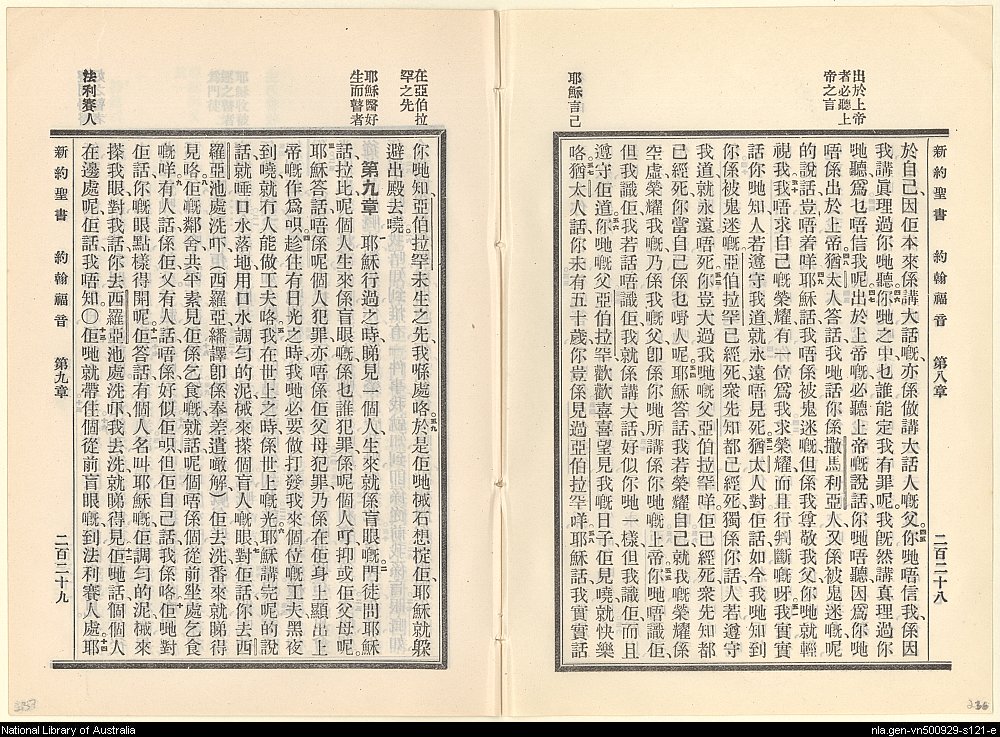 新約聖書　約翰福音　第八章　二百二十八
出於上帝
者必聽上
帝之言
耶穌言己
於自己因佢本來係講大話嘅亦係做講大話人嘅父你哋唔信我係因
我講眞理過你哋聽你哋之中乜誰能定我有罪呢我旣然講眞理過你
哋聽爲乜唔信我呢出於上帝嘅必聽上帝嘅說話你哋唔聽因爲你哋
唔係出於上帝猶太人答話我哋話你係撒馬利亞人又係被鬼迷嘅呢
的說話豈唔着咩耶穌話我唔係被鬼迷嘅但係我尊敬我父你哋就輕
視我我唔求自己嘅榮耀有一位爲我求榮耀而且行判斷嘅呀我實實
話你哋知人若遵守我道就永遠唔見死猶太人對佢話如今我哋知到
你係被鬼迷嘅亞伯拉罕已經死衆先知都已經死獨係你話人若遵守
我道就永遠唔死你豈大過我哋嘅父亞伯拉罕咩佢已經死衆先知都
已經死你當自己係乜嘢人呢耶穌答話我若榮耀自己就我嘅榮耀係
空虛榮耀我嘅乃係我嘅父卽係你哋所講係你哋嘅上帝你哋唔識佢
但我識佢我若話唔識佢我就係講大話好似你哋一樣但我識佢而且
遵守佢道你哋嘅父亞伯拉罕歡歡喜喜望見我嘅日子佢見曉就快樂
咯猶太人話你未有五十歲你豈係見過亞伯拉罕咩耶穌話我實實話
在亞伯拉
罕之先
耶穌醫好
生而瞽者
法利賽人
你哋知亞伯拉罕未生之先我喺處咯於是佢哋𢫏石想掟佢耶穌就躱
避出殿去曉
第九章　耶穌行過之時睇見一個人生來就係盲眼嘅門徒問耶穌
話拉比呢個人生來係盲眼嘅係乜誰犯罪係呢個人吖抑或佢父母呢
耶穌答話唔係呢個人犯罪亦唔係佢父母犯罪乃係在佢身上顯出上
帝嘅作爲唄趁住有日光之時我哋必要做打發我來個位嘅工夫黑夜
到曉就冇人能做工夫咯我在世上之時係世上嘅光耶穌講完呢的說
話就唾口水落地用口水調勻的泥𢫏來搽個盲人嘅眼對佢話你去西
羅亞池處洗吓（西羅亞繙譯卽係奉差遣噉解）佢去洗番來就睇得
見咯佢嘅鄰舍共平素見佢係乞食嘅就話呢個唔係個從前坐處乞食
嘅咩有人話係佢又有人話唔係好似佢唄但佢自己話我係咯佢哋對
佢話你嘅眼點樣得開呢佢答話有個人名叫耶穌嘅佢調勻的泥𢫏來
搽我眼對我話你去西羅亞池處洗吓我去洗就睇得見佢哋話個個人
在邊處呢佢話我唔知〇佢哋就帶住個從前盲眼嘅到法利賽人處耶
新約聖書　約翰福音　第九章　二百二十九
236
National Library of Australia
nla.gen-vn500929-s121-e